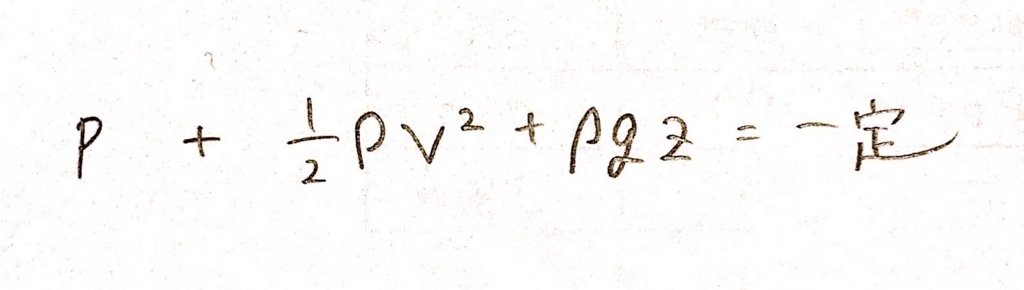 p + 1/2 ρv² + ρgz = 一定